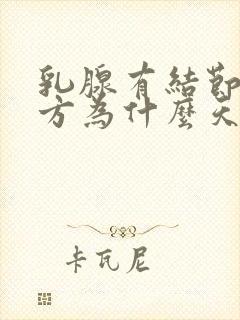 乳腺有結節
方為什麼天
卡瓦尼